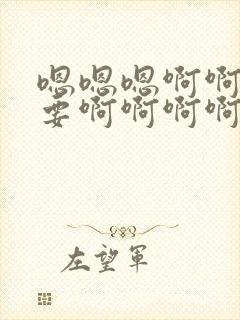 嗯嗯嗯啊啊
要啊啊啊啊
左望軍